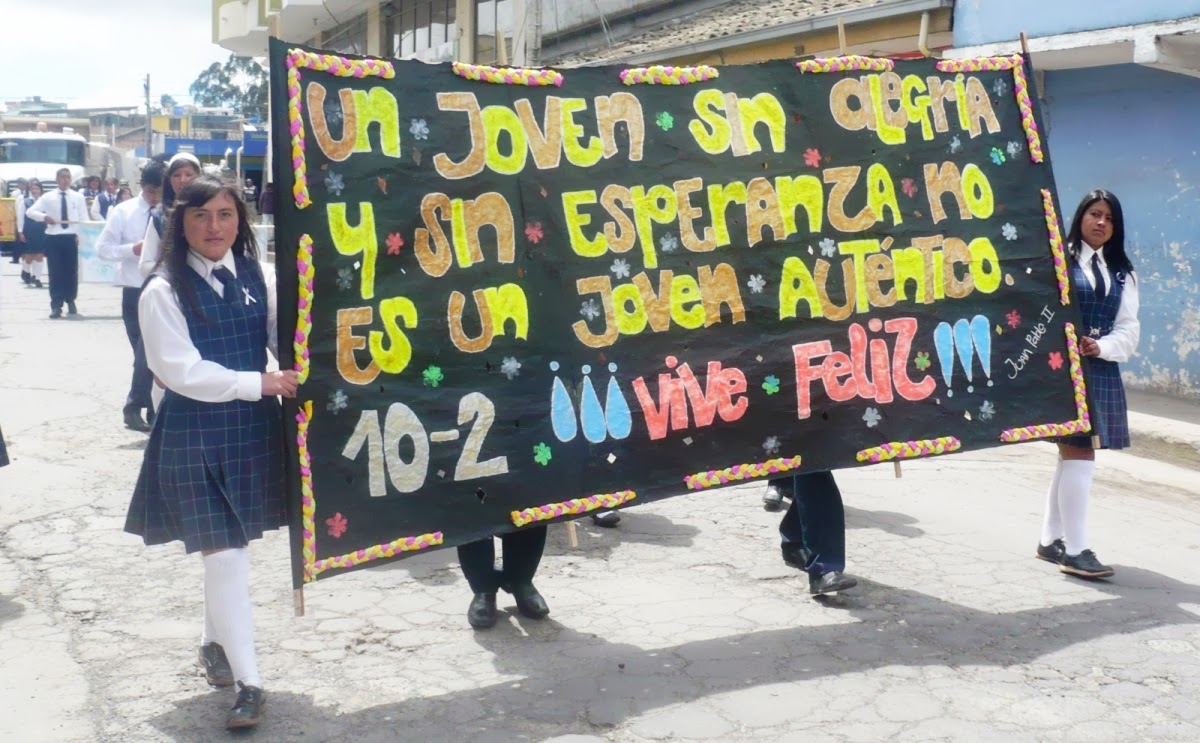 Un JOVEn Sin ALEGRíA
y Sin ESPERAnZA no
Es Un Joven AUTénTICO.
10-2 ¡¡¡ViVe FeliZ!!!
Juan Pablo II